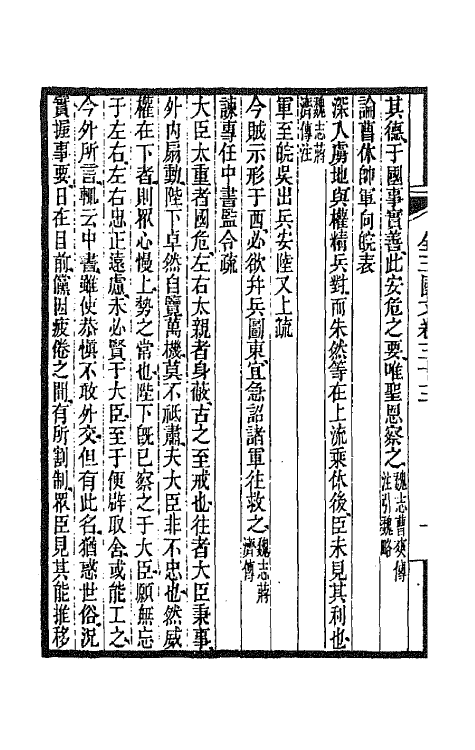 全三國文卷三十三
一
其德于國事實善此安危之要唯聖恩察之魏志曹爽傳注引魏略
論曹休帥軍向皖表
深入虜地與權精兵對而朱然等在上流乘休後臣未見其利也
魏志蔣濟傳注
軍至皖吳出兵安陸又上疏
今賊示形于西必欲并兵圖東宜急詔諸軍往救之魏志蔣濟傳
諫專任中書監令疏
大臣太重者國危左右太親者身蔽古之至戒也往者大臣秉事
外内扇動陛下卓然自覽萬機莫不祗肅夫大臣非不忠也然威
權在下者則眾心慢上勢之常也陛下既已察之于大臣願無忘
于左右左右忠正遠慮未必賢于大臣至于便辟取合或能工之
今外所言輒云中書雖使恭慎不敢外交但有此名猶惑世俗況
實握事要日在目前儻因疲倦之間有所割制眾臣見其能推移